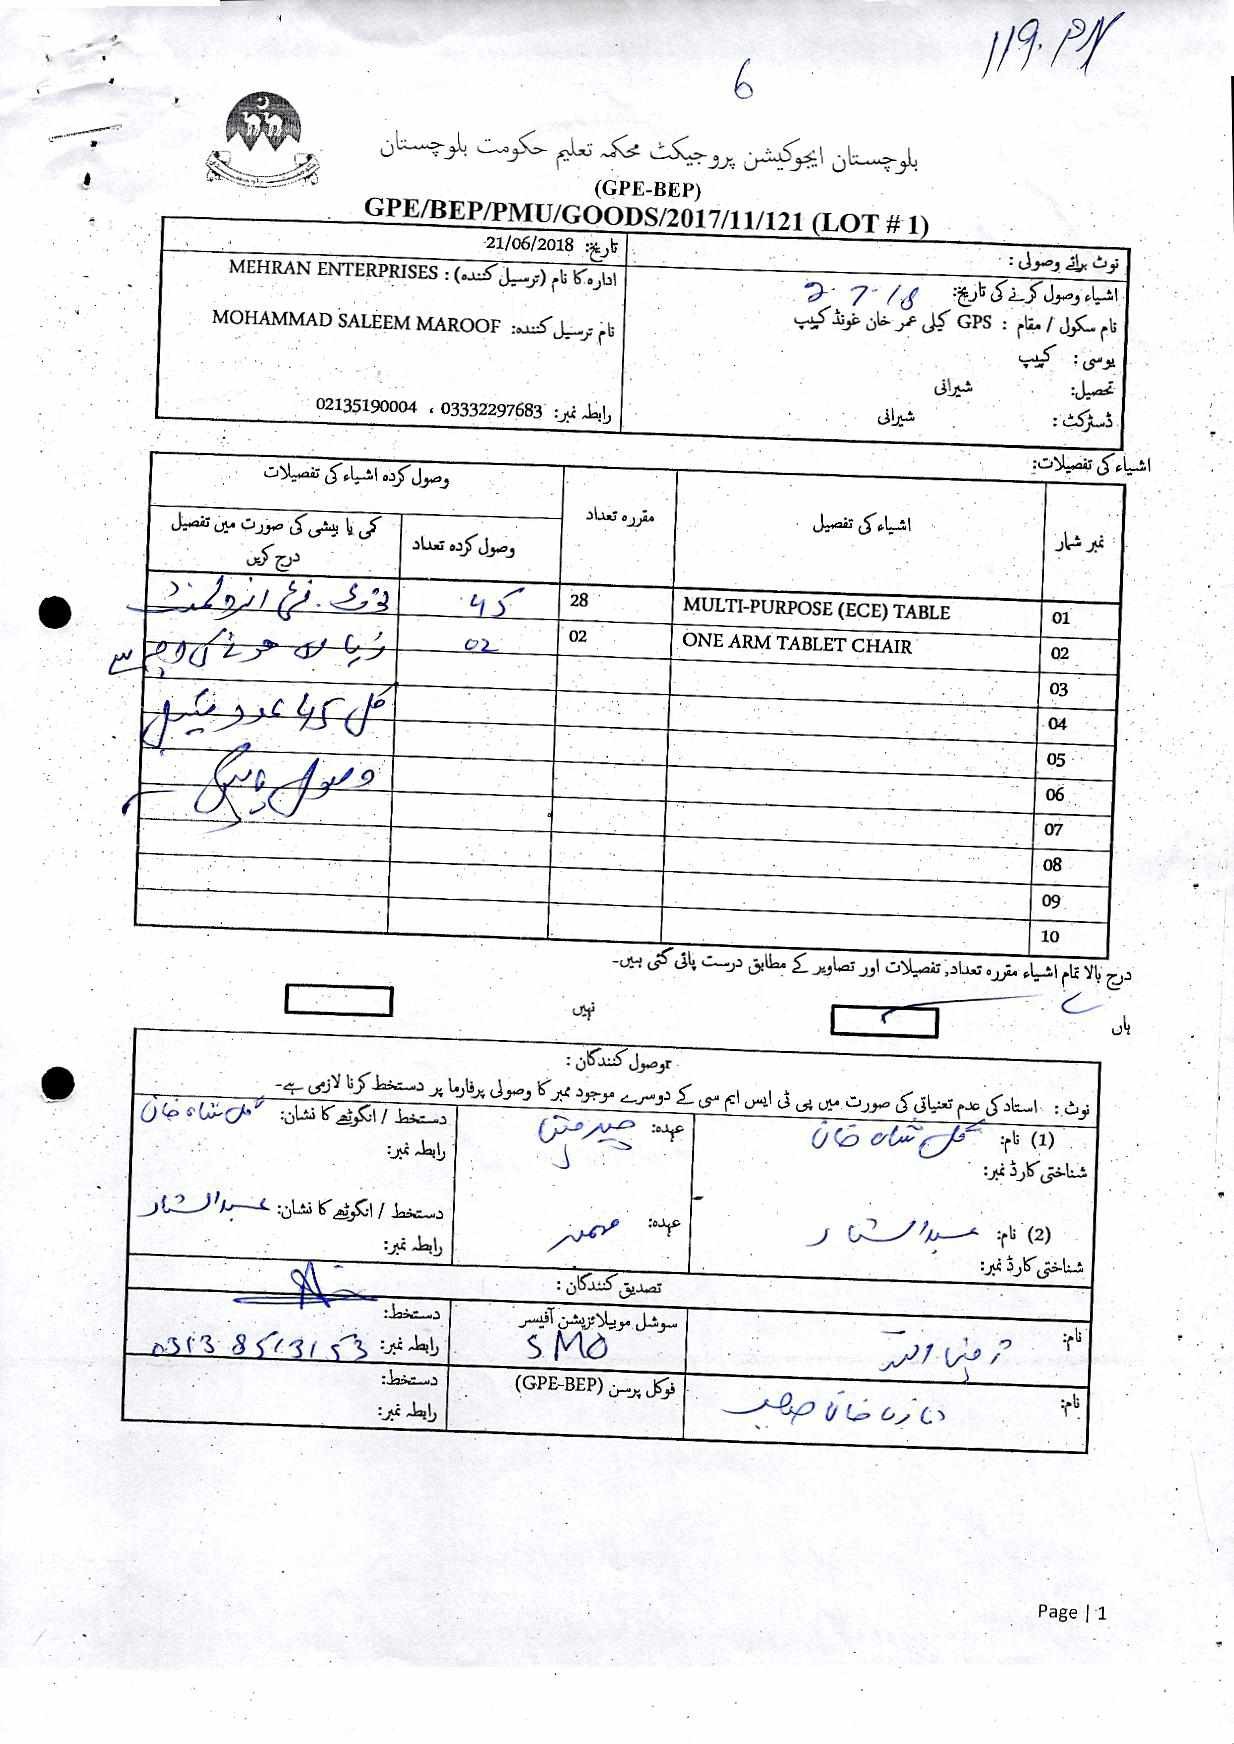 119.PN
6
بلوچستان ایجوکیشن پروجیکٹ محکمہ تعلیم حکومت بلوچستان
(GPE-BEP)
GPE/BEP/PMU/GOODS/2017/11/121 (LOT # 1)
نوٹ برائے وصولی :
اشیاء وصول کرنے کی تاریخ: 2-7-18
نام سکول / مقام : GPS کیلی عمر خان غونڈ کپیپ
یوسی : کپیپ
تحصیل: شیرانی
ڈسٹرکٹ : شیرانی
تاریخ: 21/06/2018
ادارہ کا نام (ترسیل کنندہ) : MEHRAN ENTERPRISES
نام ترسیل کنندہ: MOHAMMAD SALEEM MAROOF
رابطہ نمبر: 03332297683 ، 02135190004
اشیاء کی تفصیلات:
نمبر شمار اشیاء کی تفصیل مقررہ تعداد وصول کردہ اشیاء کی تفصیلات
وصول کردہ تعداد کمی یا بیشی کی صورت میں تفصیل درج کریں
01 MULTI-PURPOSE (ECE) TABLE 28 45
02 ONE ARM TABLET CHAIR 02 02
03
04 کل 45 عدد
05
06 وصول
07
08
09
10
درج بالا تمام اشیاء مقررہ تعداد, تفصیلات اور تصاویر کے مطابق درست پائی گئی ہیں۔
ہاں نہیں
وصول کنندگان :
نوٹ : استاد کی عدم تعنیاتی کی صورت میں پی ٹی ایس ایم سی کے دوسرے موجود ممبر کا وصولی پرفارما پر دستخط کرنا لازمی ہے۔
(1) نام: گل شاہ خان عہدہ: دستخط / انگوٹھے کا نشان: گل شاہ خان
شناختی کارڈ نمبر: رابطہ نمبر:
(2) نام: عبدالستار عہدہ: ممبر دستخط / انگوٹھے کا نشان: عبدالستار
شناختی کارڈ نمبر: رابطہ نمبر:
تصدیق کنندگان :
نام: سوشل موبیلائزیشن آفیسر دستخط:
SMO رابطہ نمبر: 0313 8513153
نام: فوکل پرسن (GPE-BEP) دستخط:
رابطہ نمبر:
Page | 1